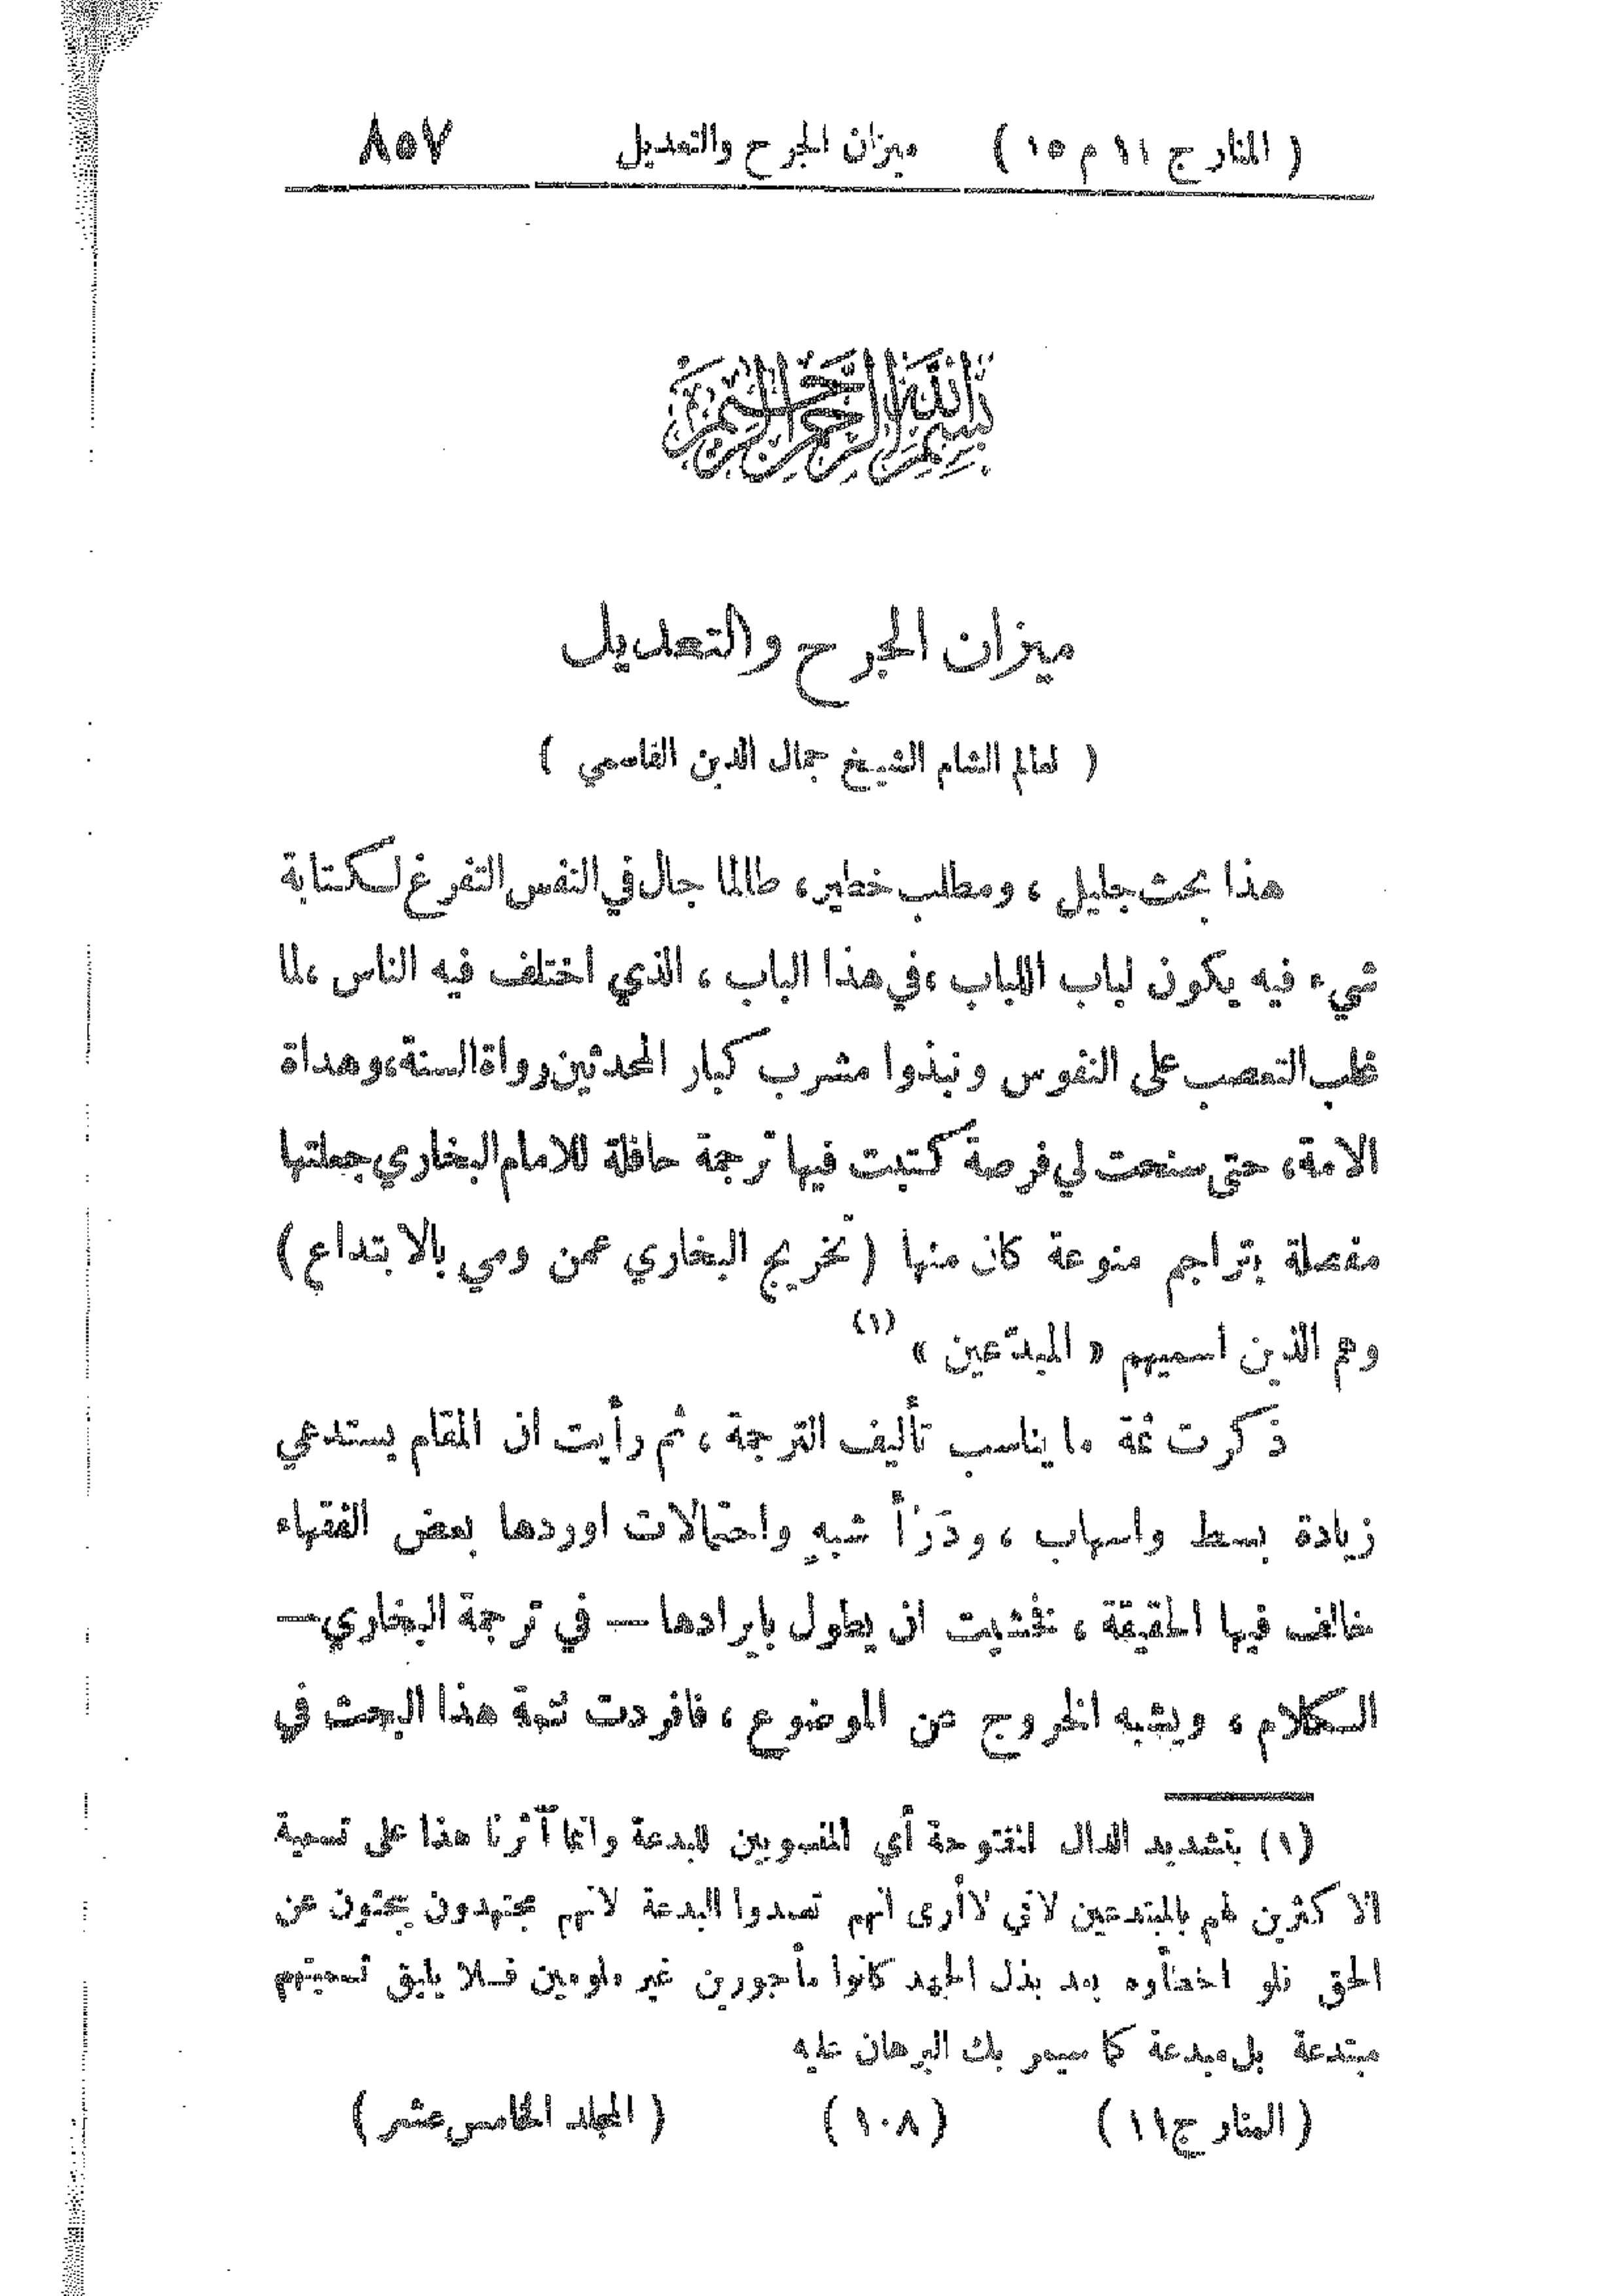 ( المنار ج ١١ م ١٥ ) ميزان الجرح والتعديل ٨٥٧
بسم الله الرحمن الرحيم
ميزان الجرح والتعديل
( لعالم الشام الشيخ جمال الدين القاسمي )
هذا بحث جليل ، ومطلب خطير ، طالما جال في النفس التفرغ لكتابة
شيء فيه يكون لباب اللباب ، في هذا الباب ، الذي اختلف فيه الناس ، لما
غلب التعصب على النفوس ونبذوا مشرب كبار المحدثين رواة السنة ، وهداة
الامة ، حتى سنحت لي فرصة كتبت فيها ترجمة حافلة للامام البخاري جعلتها
مفصلة بتراجم منوعة كان منها ( تخريج البخاري عمن رمي بالابتداع )
وهم الذين اسميهم « المبدّعين » (١)
ذكرت ثمة ما يناسب تأليف الترجمة ، ثم رأيت ان المقام يستدعي
زيادة بسط واسهاب ، ودَرْأ شبهٍ واحتمالات اوردها بعض الفقهاء
خالف فيها الحقيقة ، فخشيت ان يطول بايرادها — في ترجمة البخاري —
الكلام ، ويشبه الخروج عن الموضوع ، فافردت تتمة هذا البحث في
(١) بتشديد الدال المفتوحة أي المنسوبين للبدعة وانما آثرنا هذا على تسمية
الاكثرين لهم بالمبتدعين لاني لا أرى انهم تعمدوا البدعة لانهم مجتهدون يبحثون عن
الحق فلو اخطأوه بعد بذل الجهد كانوا مأجورين غير ملومين فلا يليق تسميتهم
مبتدعة بل مبدعة كما سيمر بك البرهان عليه
( المنار ج ١١ ) ( ١٠٨ ) ( المجلد الخامس عشر )